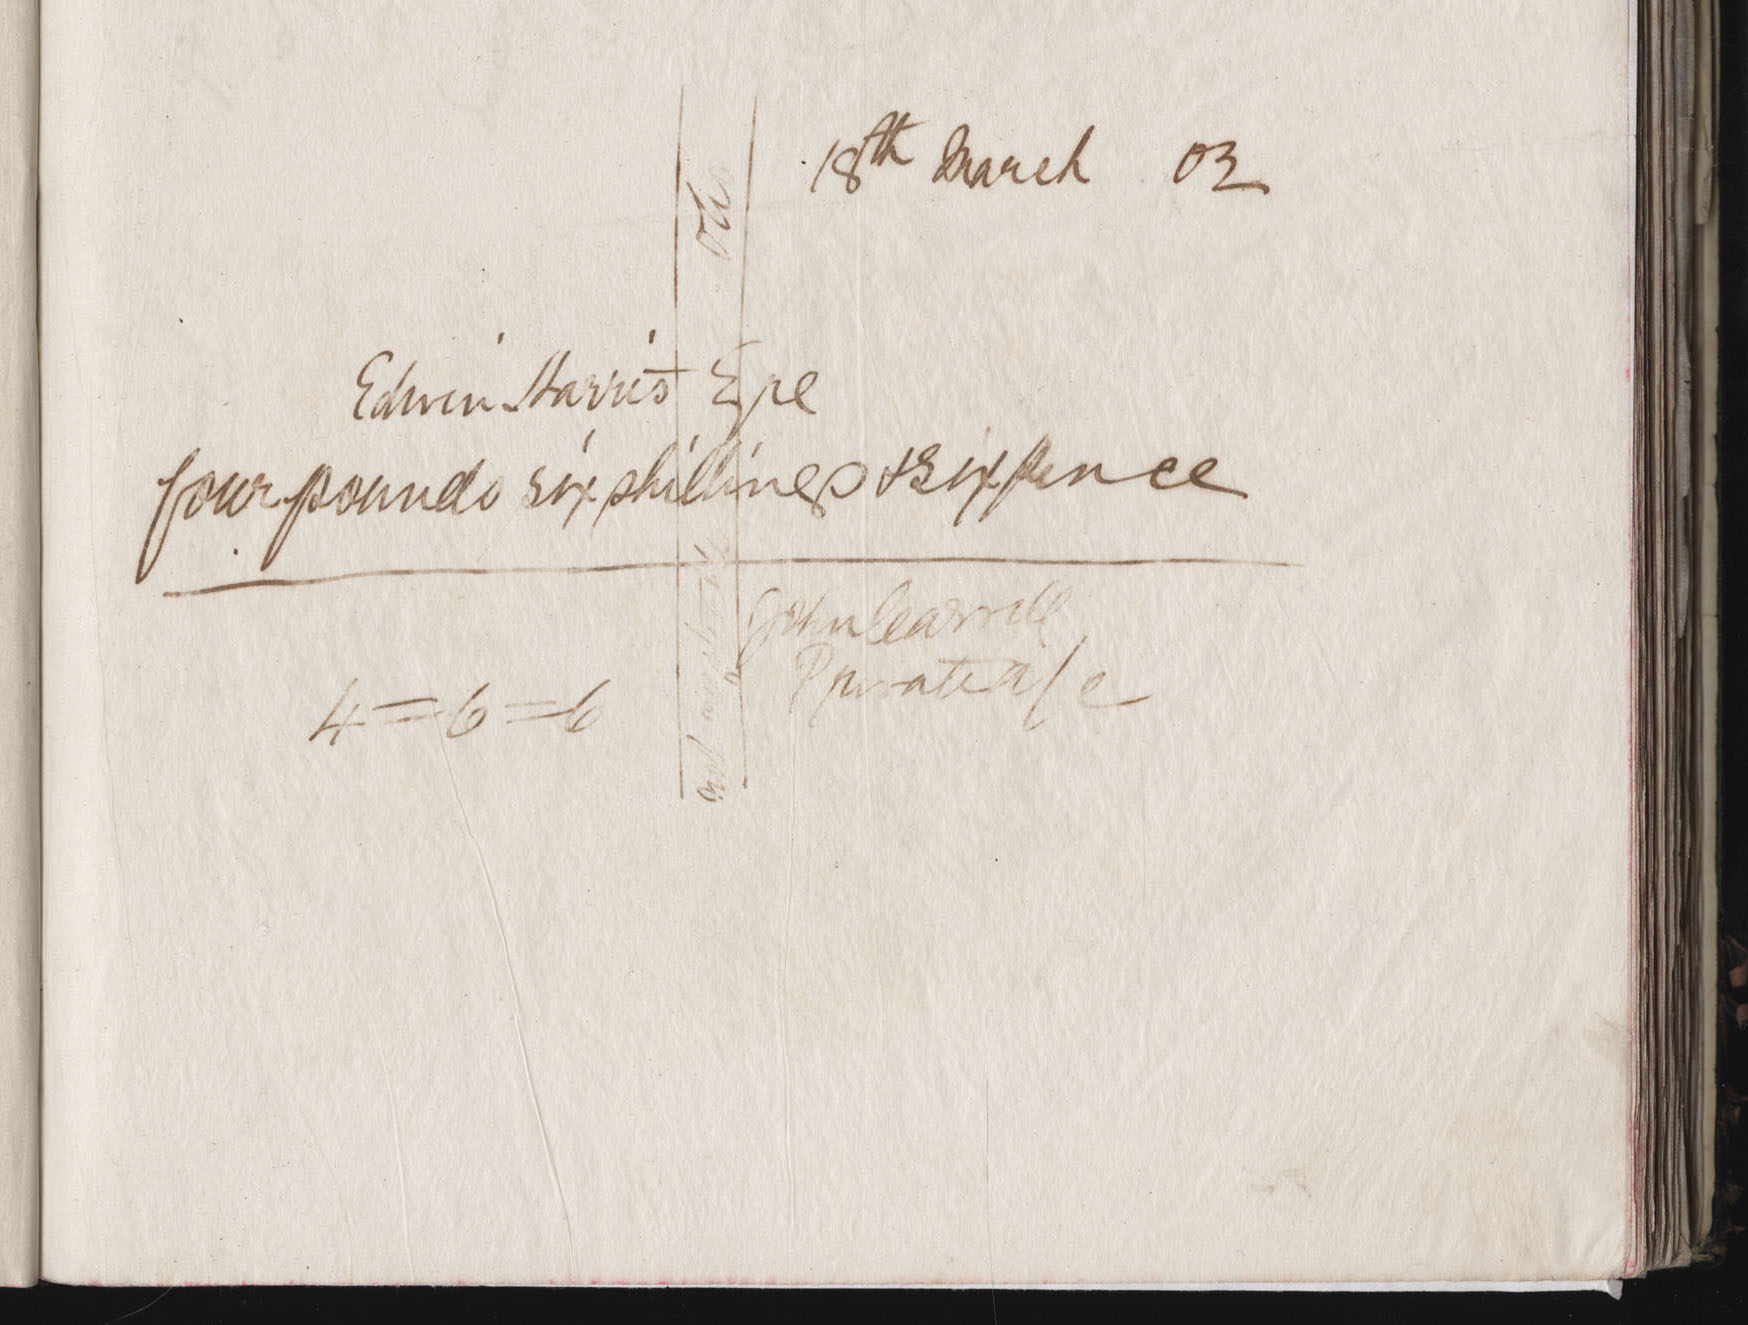 18th March 02
Edwin Harris Eqre
four pounds six shillings & sixpence
John Carroll
Private a/c
4=6=6